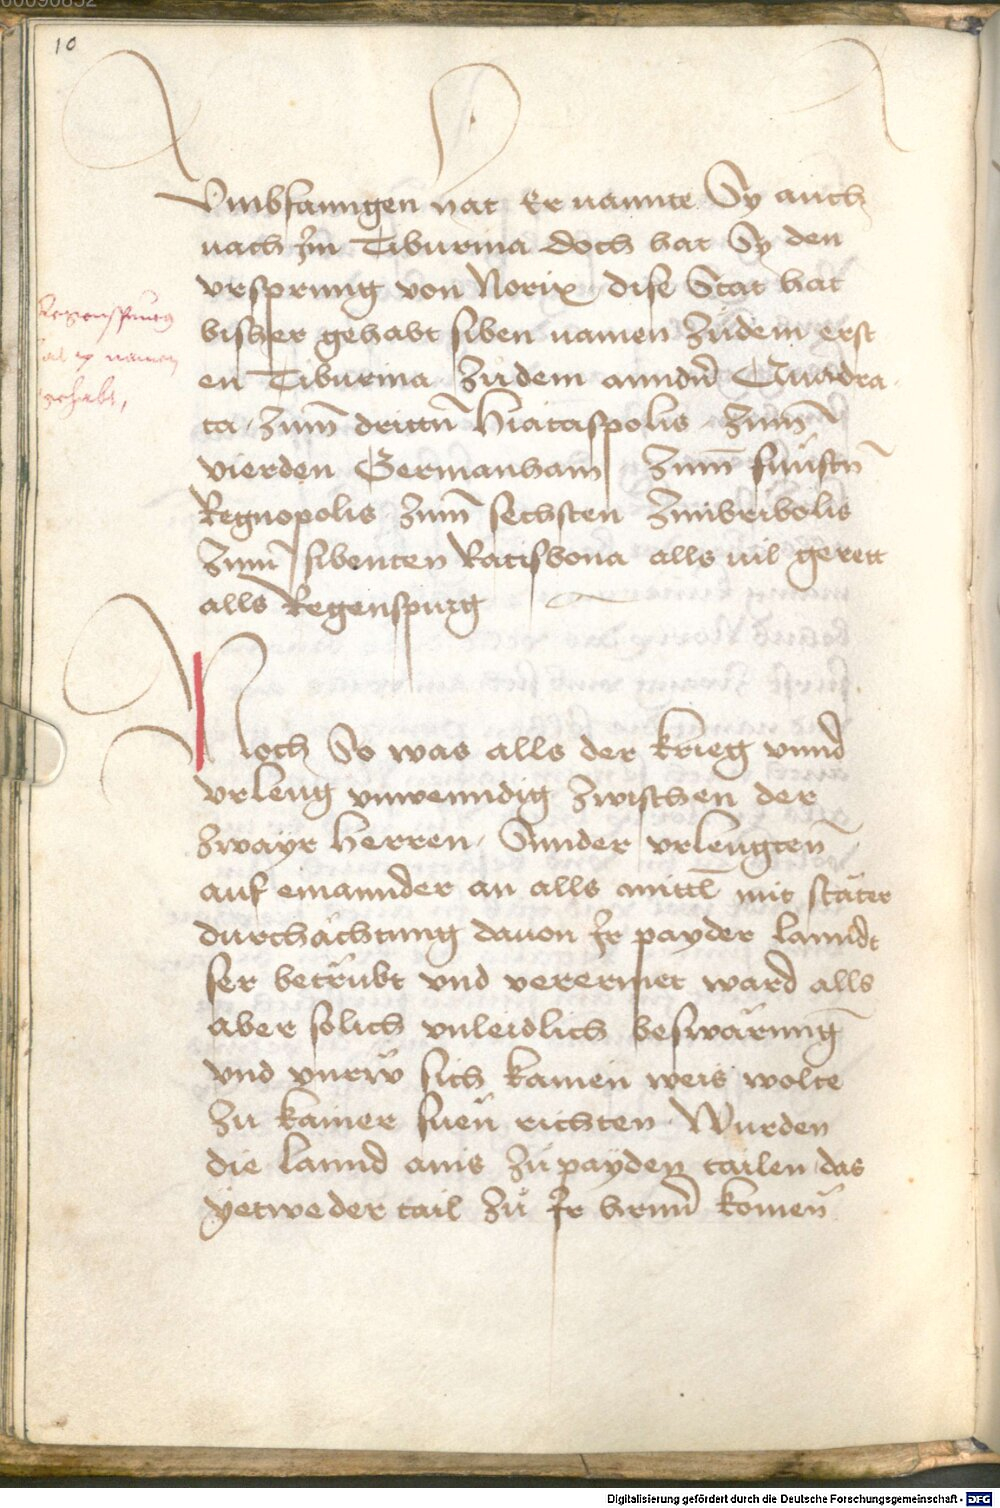 10
Vmbfanngen hat Er nannte Sy auch
nach Im Tiburnia doch hat Sy den
vrsprung von Norix dise Stat hat
bisher gehabt siben namen zudem erst
en Tiburina zu dem anndn̄ Quadra
ta zum̄ drittn̄ Hiataspolis zum̄
vierden Germanham zum̄ funfftn̄
Regnopolis zum̄ sechsten Imbripolis
zum̄ sibenten Ratisbona alls vil gerett
alls Regenspurg
Regenspurg
hat 7 namen
gehabt,
Noch So was alls der krieg vnnd
vrleug vnwenndig zwischen der
zwayr Herren Sunder vrleugten
auf einannder an alls mittl mit stäter
durchächtung dauon Ir payder lanndt
ser betrübt vnd verermet ward alls
aber solich vnleidlich beswärung
vnd vnrw sich kainen weis wolte
zu kainer suen richten Wurden
die lannd auis zu payden tailen das
yetweder tail zu Ir hrnn̄ komen
Digitalisierung gefördert durch die Deutsche Forschungsgemeinschaft - DFG